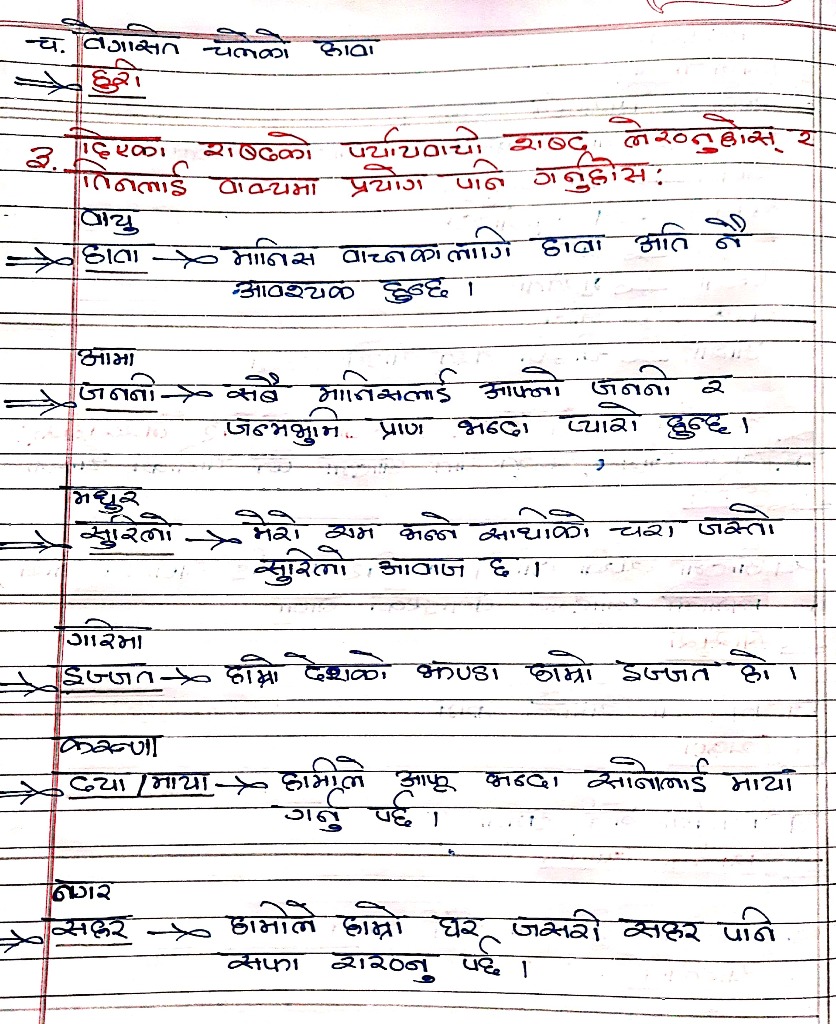 च. वेगसित चलेको हावा
⇒ हुरी
३. दिएका शब्दको पर्यायवाची शब्द लेख्नुहोस् र
तिनलाई वाक्यमा प्रयोग पनि गर्नुहोस :
वायु
⇒ हावा → मानिस बाच्नकालागि हावा अति नै
आवश्यक हुन्छ ।
आमा
⇒ जननी → सबै मानिसलाई आफ्नो जननी र
जन्मभुमि प्राण भन्दा प्यारो हुन्छ ।
मधुर
⇒ सुरिलो → मेरो राम भन्ने साथीको चरा जस्तो
सुरिलो आवाज छ ।
गरिमा
⇒ इज्जत → हाम्रो देशको झण्डा हाम्रो इज्जत हो ।
करुणा
⇒ दया / माया → हामीले आफू भन्दा सानालाई माया
गर्नु पर्छ ।
नगर
⇒ सहर → हामीले हाम्रो घर जसरी सहर पनि
सफा राख्नु पर्छ ।